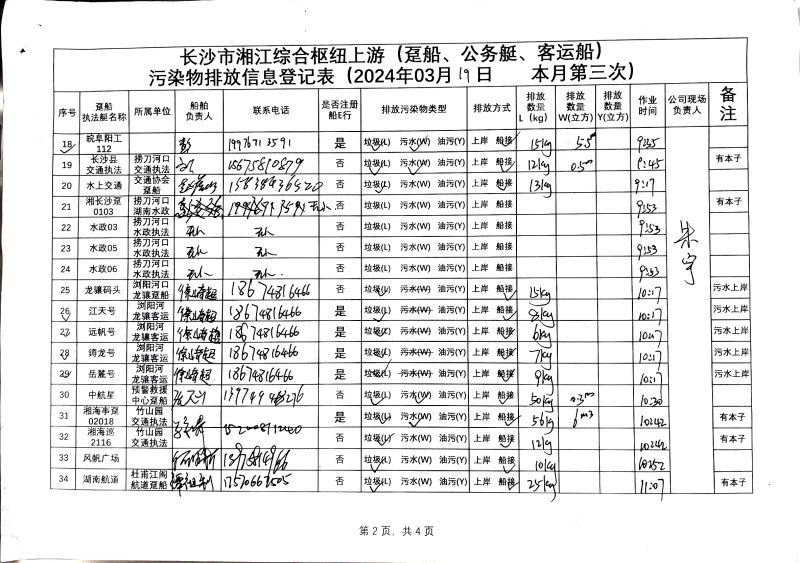 长沙市湘江综合枢纽上游（趸船、公务艇、客运船）
污染物排放信息登记表（2024年03月19日 本月第三次）
序号 趸船执法艇名称 所属单位 船舶负责人 联系电话 是否注册船E行 排放污染物类型 排放方式 排放数量L（kg） 排放数量W(立方) 排放数量Y(立方) 作业时间 公司现场负责人 备注
18 皖阜阳工112 是 垃圾(L) 污水(W) 油污(Y) 上岸 船接 15kg
19 长沙县交通执法 捞刀河口交通执法 15675810879 否 垃圾(L) 污水(W) 油污(Y) 上岸 船接 12kg 0.5m 9:45 有本子
20 水上交通 交通协会趸船 否 垃圾(L) 污水(W) 油污(Y) 上岸 船接 13kg 9:17
21 湘长沙趸0103 捞刀河口湖南水政 否 垃圾(L) 污水(W) 油污(Y) 上岸 船接 9:53 有本子
22 水政03 捞刀河口水政执法 无人 无人 否 垃圾(L) 污水(W) 油污(Y) 上岸 船接 9:53
23 水政05 捞刀河口水政执法 无人 无人 否 垃圾(L) 污水(W) 油污(Y) 上岸 船接 9:53
24 水政06 捞刀河口水政执法 无人 无人 否 垃圾(L) 污水(W) 油污(Y) 上岸 船接 9:53
朱宇
25 龙骧码头 浏阳河口龙骧趸船 18674816466 否 垃圾(L) 污水(W) 油污(Y) 上岸 船接 15kg 10:17 污水上岸
26 江天号 浏阳河龙骧客运 18674816466 是 垃圾(L) 污水(W) 油污(Y) 上岸 船接 8kg 10:17 污水上岸
27 远帆号 浏阳河龙骧客运 18674816466 是 垃圾(L) 污水(W) 油污(Y) 上岸 船接 6kg 10:17 污水上岸
28 鹁龙号 浏阳河龙骧客运 18674816466 是 垃圾(L) 污水(W) 油污(Y) 上岸 船接 7kg 10:17 污水上岸
29 岳麓号 浏阳河龙骧客运 18674816466 是 垃圾(L) 污水(W) 油污(Y) 上岸 船接 9kg 10:17 污水上岸
30 中航星 预警救援中心趸船 否 垃圾(L) 污水(W) 油污(Y) 上岸 船接 50kg 10:30
31 湘海事趸02018 竹山园交通执法 是 垃圾(L) 污水(W) 油污(Y) 上岸 船接 56kg 6m3 10:42 有本子
32 湘海巡2116 竹山园交通执法 否 垃圾(L) 污水(W) 油污(Y) 上岸 船接 10:42 有本子
33 风帆广场 否 垃圾(L) 污水(W) 油污(Y) 上岸 船接 10kg 10:52
34 湖南航道 杜甫江阁航道趸船 否 垃圾(L) 污水(W) 油污(Y) 上岸 船接 25kg 11:07 有本子
第 2 页、共 4 页